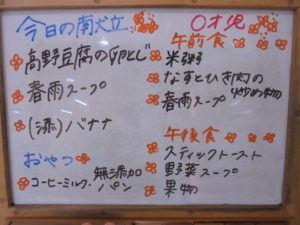 今日の献立
高野豆腐の卵とじ
春雨スープ
(添)バナナ
おやつ
コーヒーミルク・無添加パン
0才児
午前食
米粥
なすとひき肉の炒め物
春雨スープ
午後食
スティックトースト
野菜スープ
果物